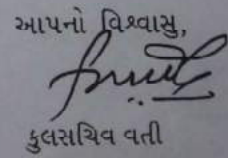 આપનો વિશ્વાસુ,
કુલસચિવ વતી